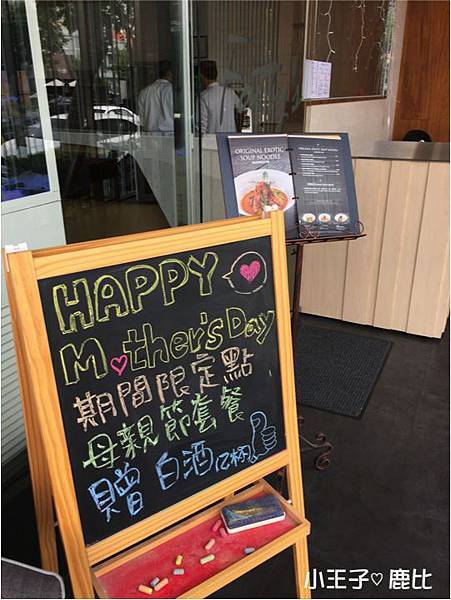 ORIGINAL EXOTIC
SOUP NOODLE
HAPPY
Mother's Day
期間限定點
母親節套餐
贈 白酒(乙杯)
小王子♡ 鹿比